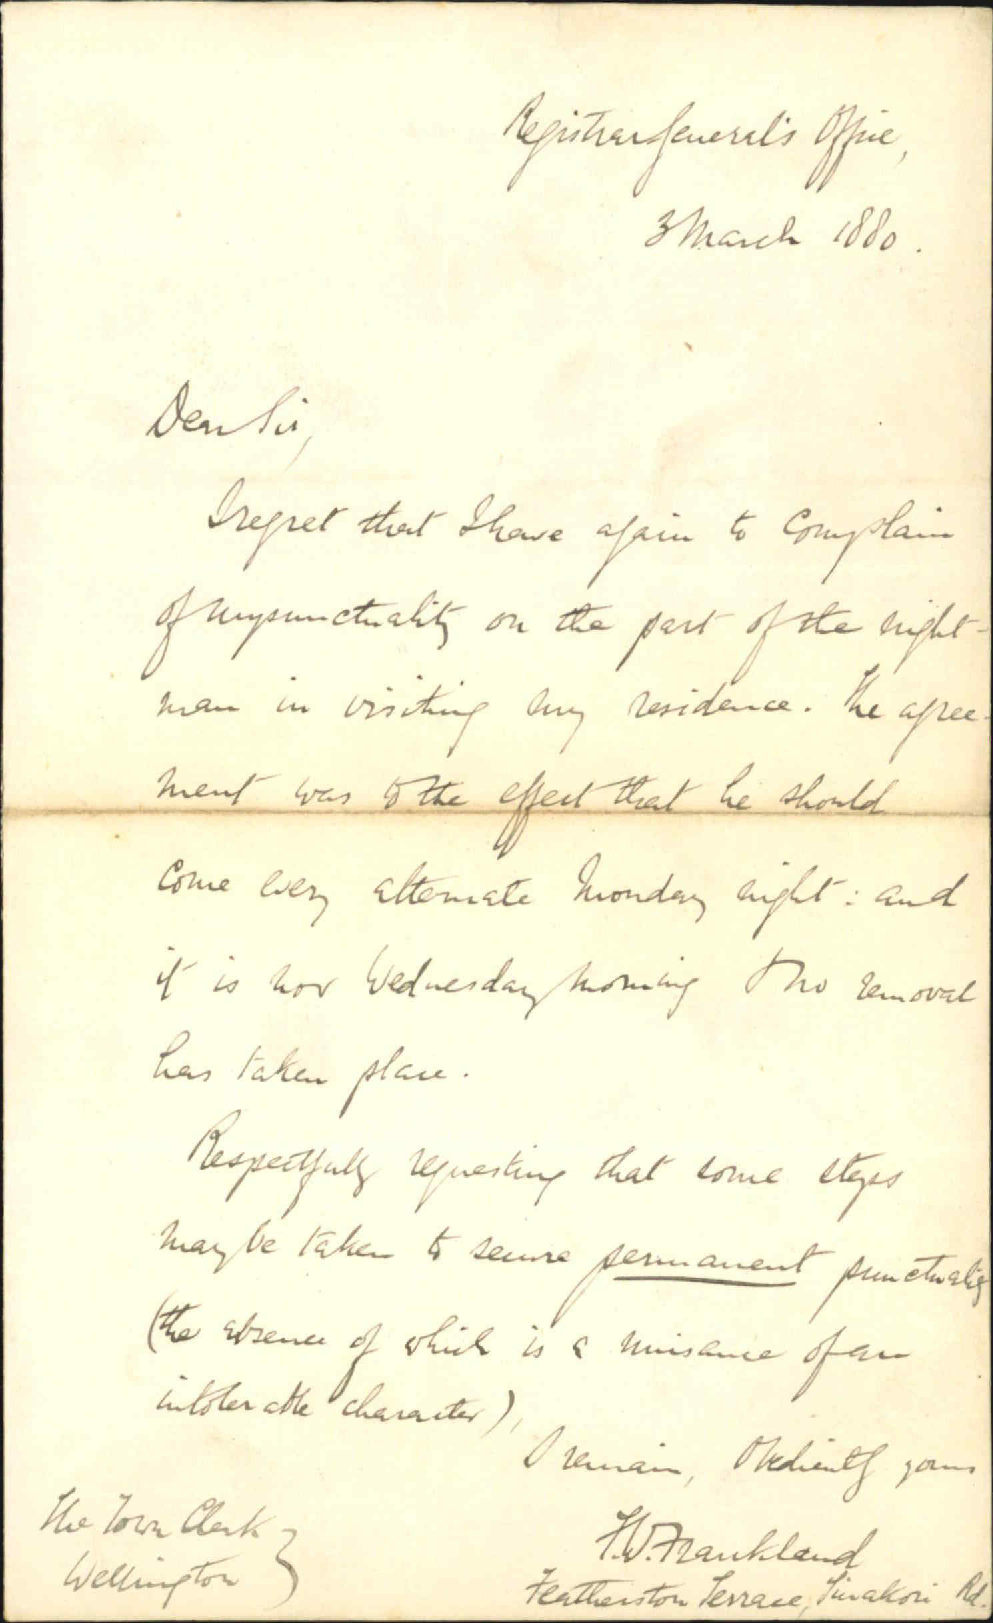 Registrar General's Office,
3 March 1880.
Dear Sir,
I regret that I have again to complain
of unpunctuality on the part of the night-
man in visiting my residence. The agree-
ment was to the effect that he should
come every alternate Monday night: and
it is now Wednesday morning & no removal
has taken place.
Respectfully requesting that some steps
may be taken to secure permanent punctuality
(the absence of which is a nuisance of an
intolerable character),
I remain, Obediently yours
F.W. Frankland
Featherston Terrace, Tinakori Rd.
The Town Clerk
Wellington